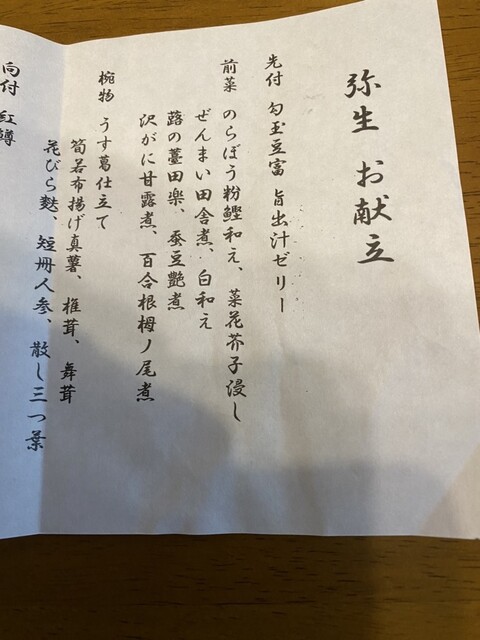 弥生 お献立
先付 勾玉豆富 旨出汁ゼリー
前菜 のらぼう粉鰹和え、菜花芥子浸し
ぜんまい田舎煮、白和え
蕗の薹田楽、蚕豆艶煮
沢がに甘露煮、百合根梅ノ尾煮
椀物 うす葛仕立て
筍若布揚げ真薯、椎茸、舞茸
花びら麩、短冊人参、散し三つ葉
向付 紅鱒